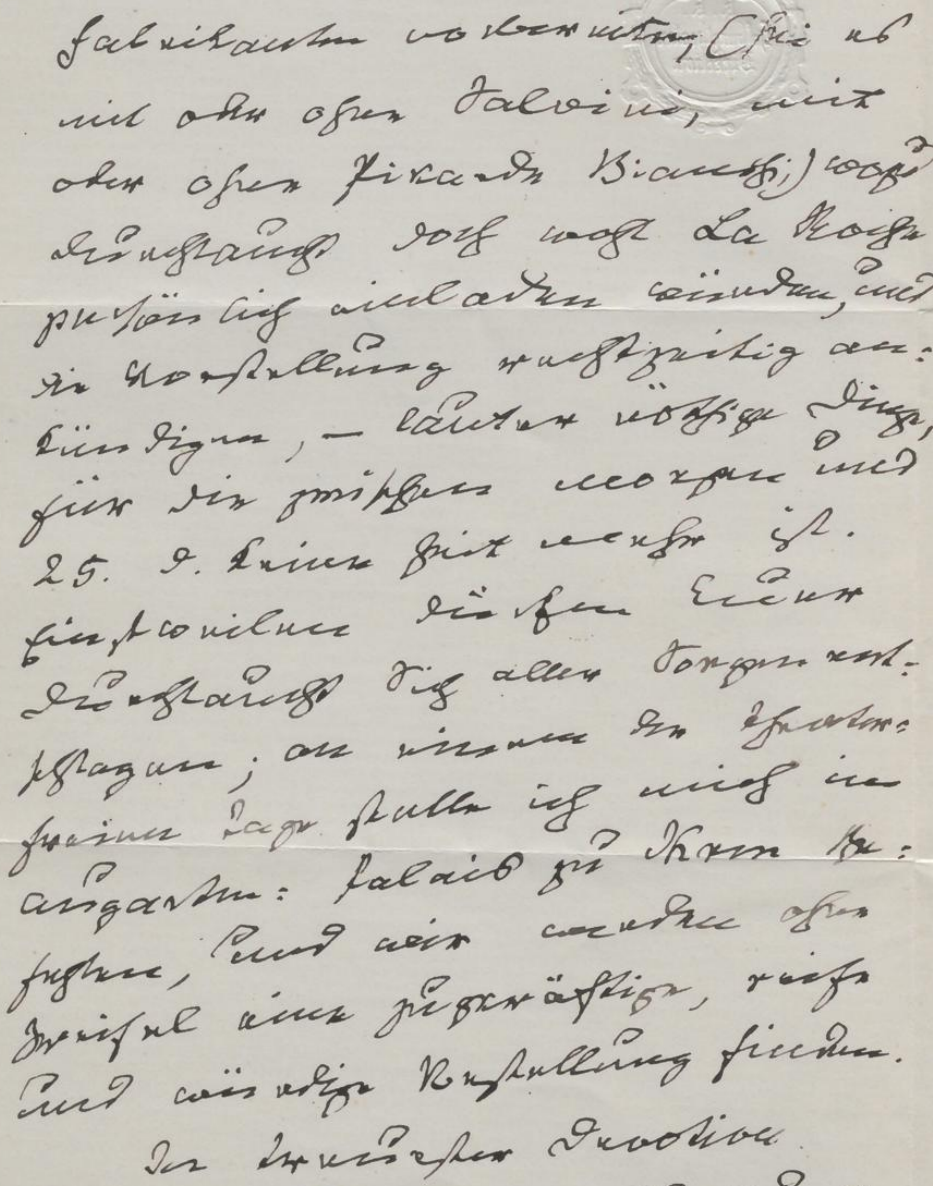 Fabrikanten vorbereiten, (sei es
mit oder ohne Salvini, mit
oder ohne Bianchi;)
Durchlaucht doch wohl La Roche
persönlich einladen würden, und
die Vorstellung rechtzeitig an=
kündigen, – lauter nöthige Dinge,
für die zwischen morgen und
25. d. keine Zeit mehr ist.
Einstweilen dürfen Euer
Durchlaucht Sich aller Sorgen ent=
schlagen; an einem der theater=
freien Tage stelle ich mich im
Augarten=Palais zu Ihren Be=
fehlen, und wir werden ohne
Zweifel eine zugkräftige, reife
und würdige Vorstellung finden.
In treuester Devotion